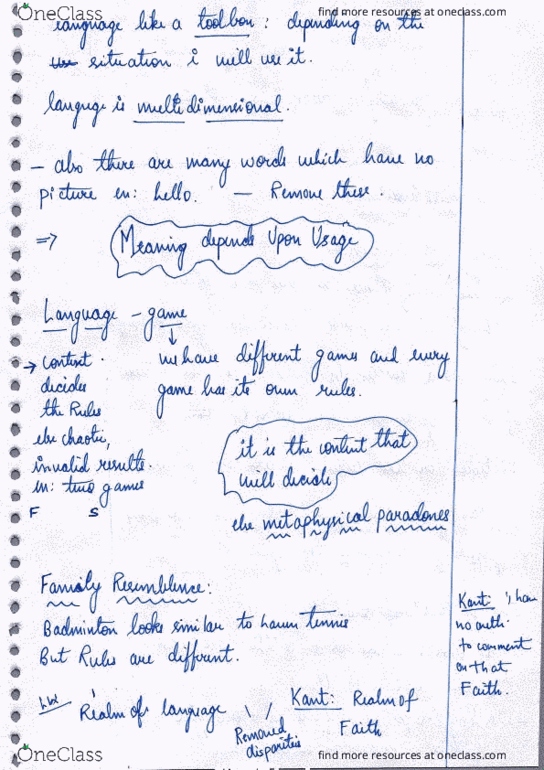 OneClass
find more resources at oneclass.com
language like a toolbox : depending on the
situation i will use it.
languge is multidimensional.
– also there are many words which have no
picture en: hello. — Remove these.
⇒ Meaning depends Upon Usage
Language – game
↓
→ context . we have different games and every
decides game has its own rules.
the Rules
else chaotic, it is the context that
invalid results. will decide
en: two games
F S else metaphysical paradoxes
Family Resemblence:
Badminton looks similar to lawn tennis
But Rules are diffrent.
Kant: I have
no auth.
to comment
on that
Faith.
Realm of language Kant: Realm of
Faith
Removed
disparities
OneClass
find more resources at oneclass.com